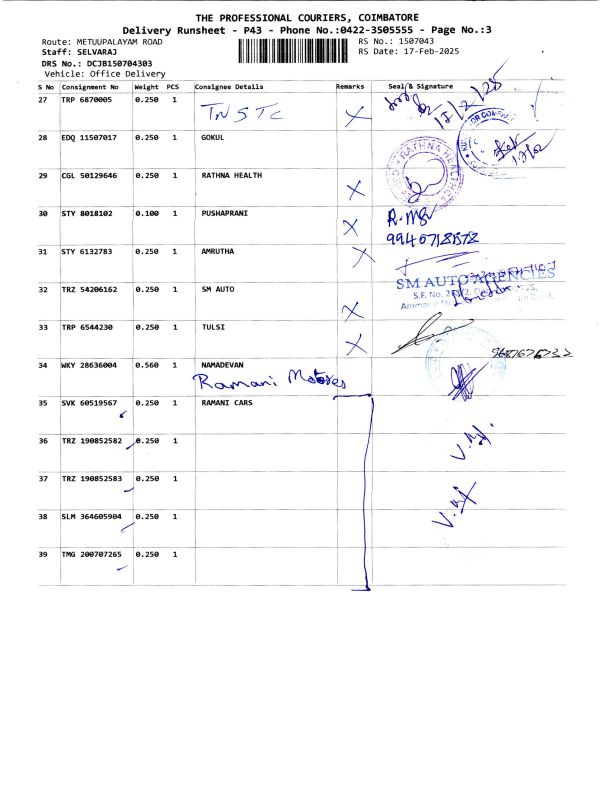 THE PROFESSIONAL COURIERS, COIMBATORE
Delivery Runsheet - P43 - Phone No.:0422-3505555 - Page No.:3
Route: METUUPALAYAM ROAD RS No.: 1507043
Staff: SELVARAJ RS Date: 17-Feb-2025
DRS No.: DCJB150704303
Vehicle: Office Delivery
S No Consignment No Weight PCS Consignee Details Remarks Seal & Signature
27 TRP 6870005 0.250 1 TNSTC
28 EDQ 11507017 0.250 1 GOKUL
29 CGL 50129646 0.250 1 RATHNA HEALTH
30 STY 8018102 0.100 1 PUSHAPRANI
31 STY 6132783 0.250 1 AMRUTHA
32 TRZ 54206162 0.250 1 SM AUTO SM AUTO AGENCIES
S.F. No.
33 TRP 6544230 0.250 1 TULSI
34 WKY 28636004 0.560 1 NAMADEVAN
Ramani Motores
35 SVK 60519567 0.250 1 RAMANI CARS
36 TRZ 190852582 0.250 1
37 TRZ 190852583 0.250 1
38 SLM 364605904 0.250 1
39 TMG 200707265 0.250 1